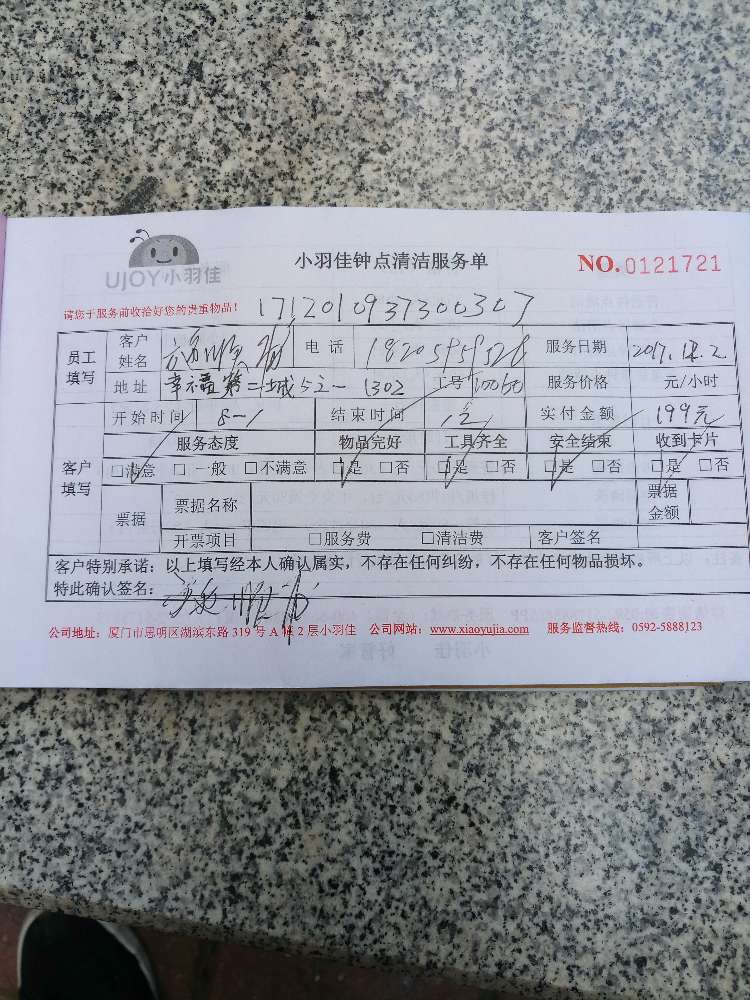 UJOY小羽佳
小羽佳钟点清洁服务单
NO.0121721
请您于服务前收拾好您的贵重物品!
171201093730030​7
员工填写 客户姓名 电话 18205959528 服务日期 2017.12.2
地址 幸福 二城 52-1302 工号 服务价格 元/小时
客户填写 开始时间 8-1 结束时间 实付金额 199元
服务态度 物品完好 工具齐全 安全结束 收到卡片
□满意 □一般 □不满意 □是 □否 □是 □否 □是 □否 □是 □否
票据 票据名称 票据金额
开票项目 □服务费 □清洁费 客户签名
客户特别承诺：以上填写经本人确认属实，不存在任何纠纷，不存在任何物品损坏。
特此确认签名：
公司地址：厦门市思明区湖滨东路 319 号 A 幢 2 层小羽佳 公司网站：www.xiaoyujia.com 服务监督热线：0592-5888123